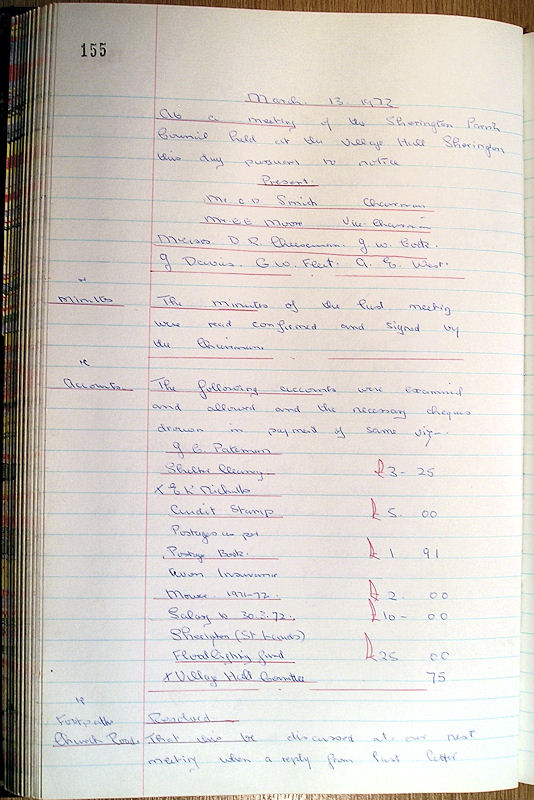 155
March 13. 1972
At a meeting of the Sherington Parish
Council held at the Village Hall Sherington
this day pursuant to notice
Present.
Mr. C.D. Smith Chairman
Mr. E.E. Moore Vice-Chairman
Messrs. D. R. Cheeseman. J. W. Cook.
J Davies. G. W. Fleet. A. E. West.
Minutes
The minutes of the last meeting
were read confirmed and signed by
the Chairman
Accounts
The following accounts were examined
and allowed and the necessary cheques
drawn in payment of same viz-
J. E. Pateman
Shelter Cleaning £3 - 25
X E K Nicholls
Audit Stamp £5. 00
Postages as per
Postage Book. £1 91
Insurance
Mower 1971-72. £2. 00
Salary to 30.3.72. £10 - 00
(St Lauds)
Floodlighting fund £25 00
X Village Hall Committee 75
Footpaths
Resolved
Church Road.
That this be discussed at our next
meeting when a reply from last letter